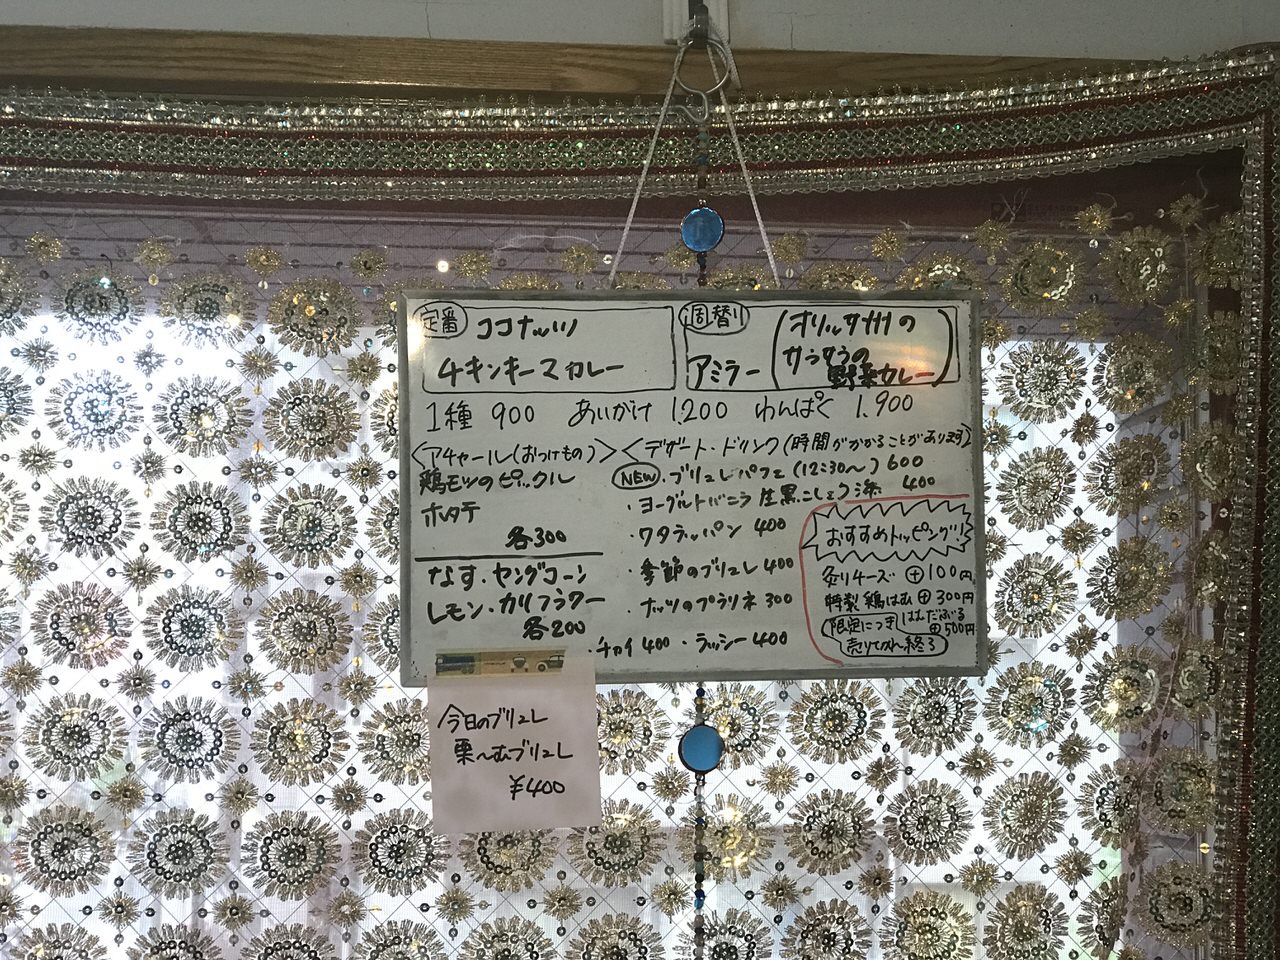 定番 ココナルツ
チキンキーマカレー
週替り
アミラー
オリッサ州の
サラサラの
野菜カレー
1種 900 あいがけ 1.200 わんぱく 1.900
<アチャール(おつけもの)>
鶏モツのピックル
ホタテ
各300
なす・ヤングコーン
レモン・カリフラワー
各200
<デザート・ドリンク(時間がかかることがあります)
NEW・ブリュレパフェ(12:30〜)600
・ヨーグルトバニラ 生黒こしょう添 400
・ワタラッパン 400
・季節のブリュレ 400
・ナッツのプラリネ 300
・チャイ 400 ・ラッシー 400
おすすめトッピング!!
炙りチーズ ⊕100円
特製鶏はむ ⊕300円
はむだぶる
⊕500円
限定につき
売りてれん終る
今日のブリュレ
栗〜むブリュレ
¥400